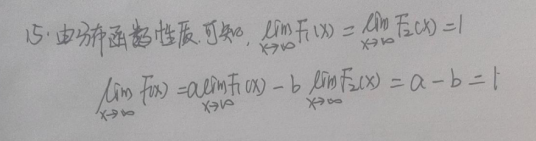 15. 由分布函数性质,可知, lim x→∞ F₁(x) = lim x→∞ F₂(x) = 1
lim x→∞ F(x) = a lim x→∞ F₁(x) - b lim x→∞ F₂(x) = a - b = 1